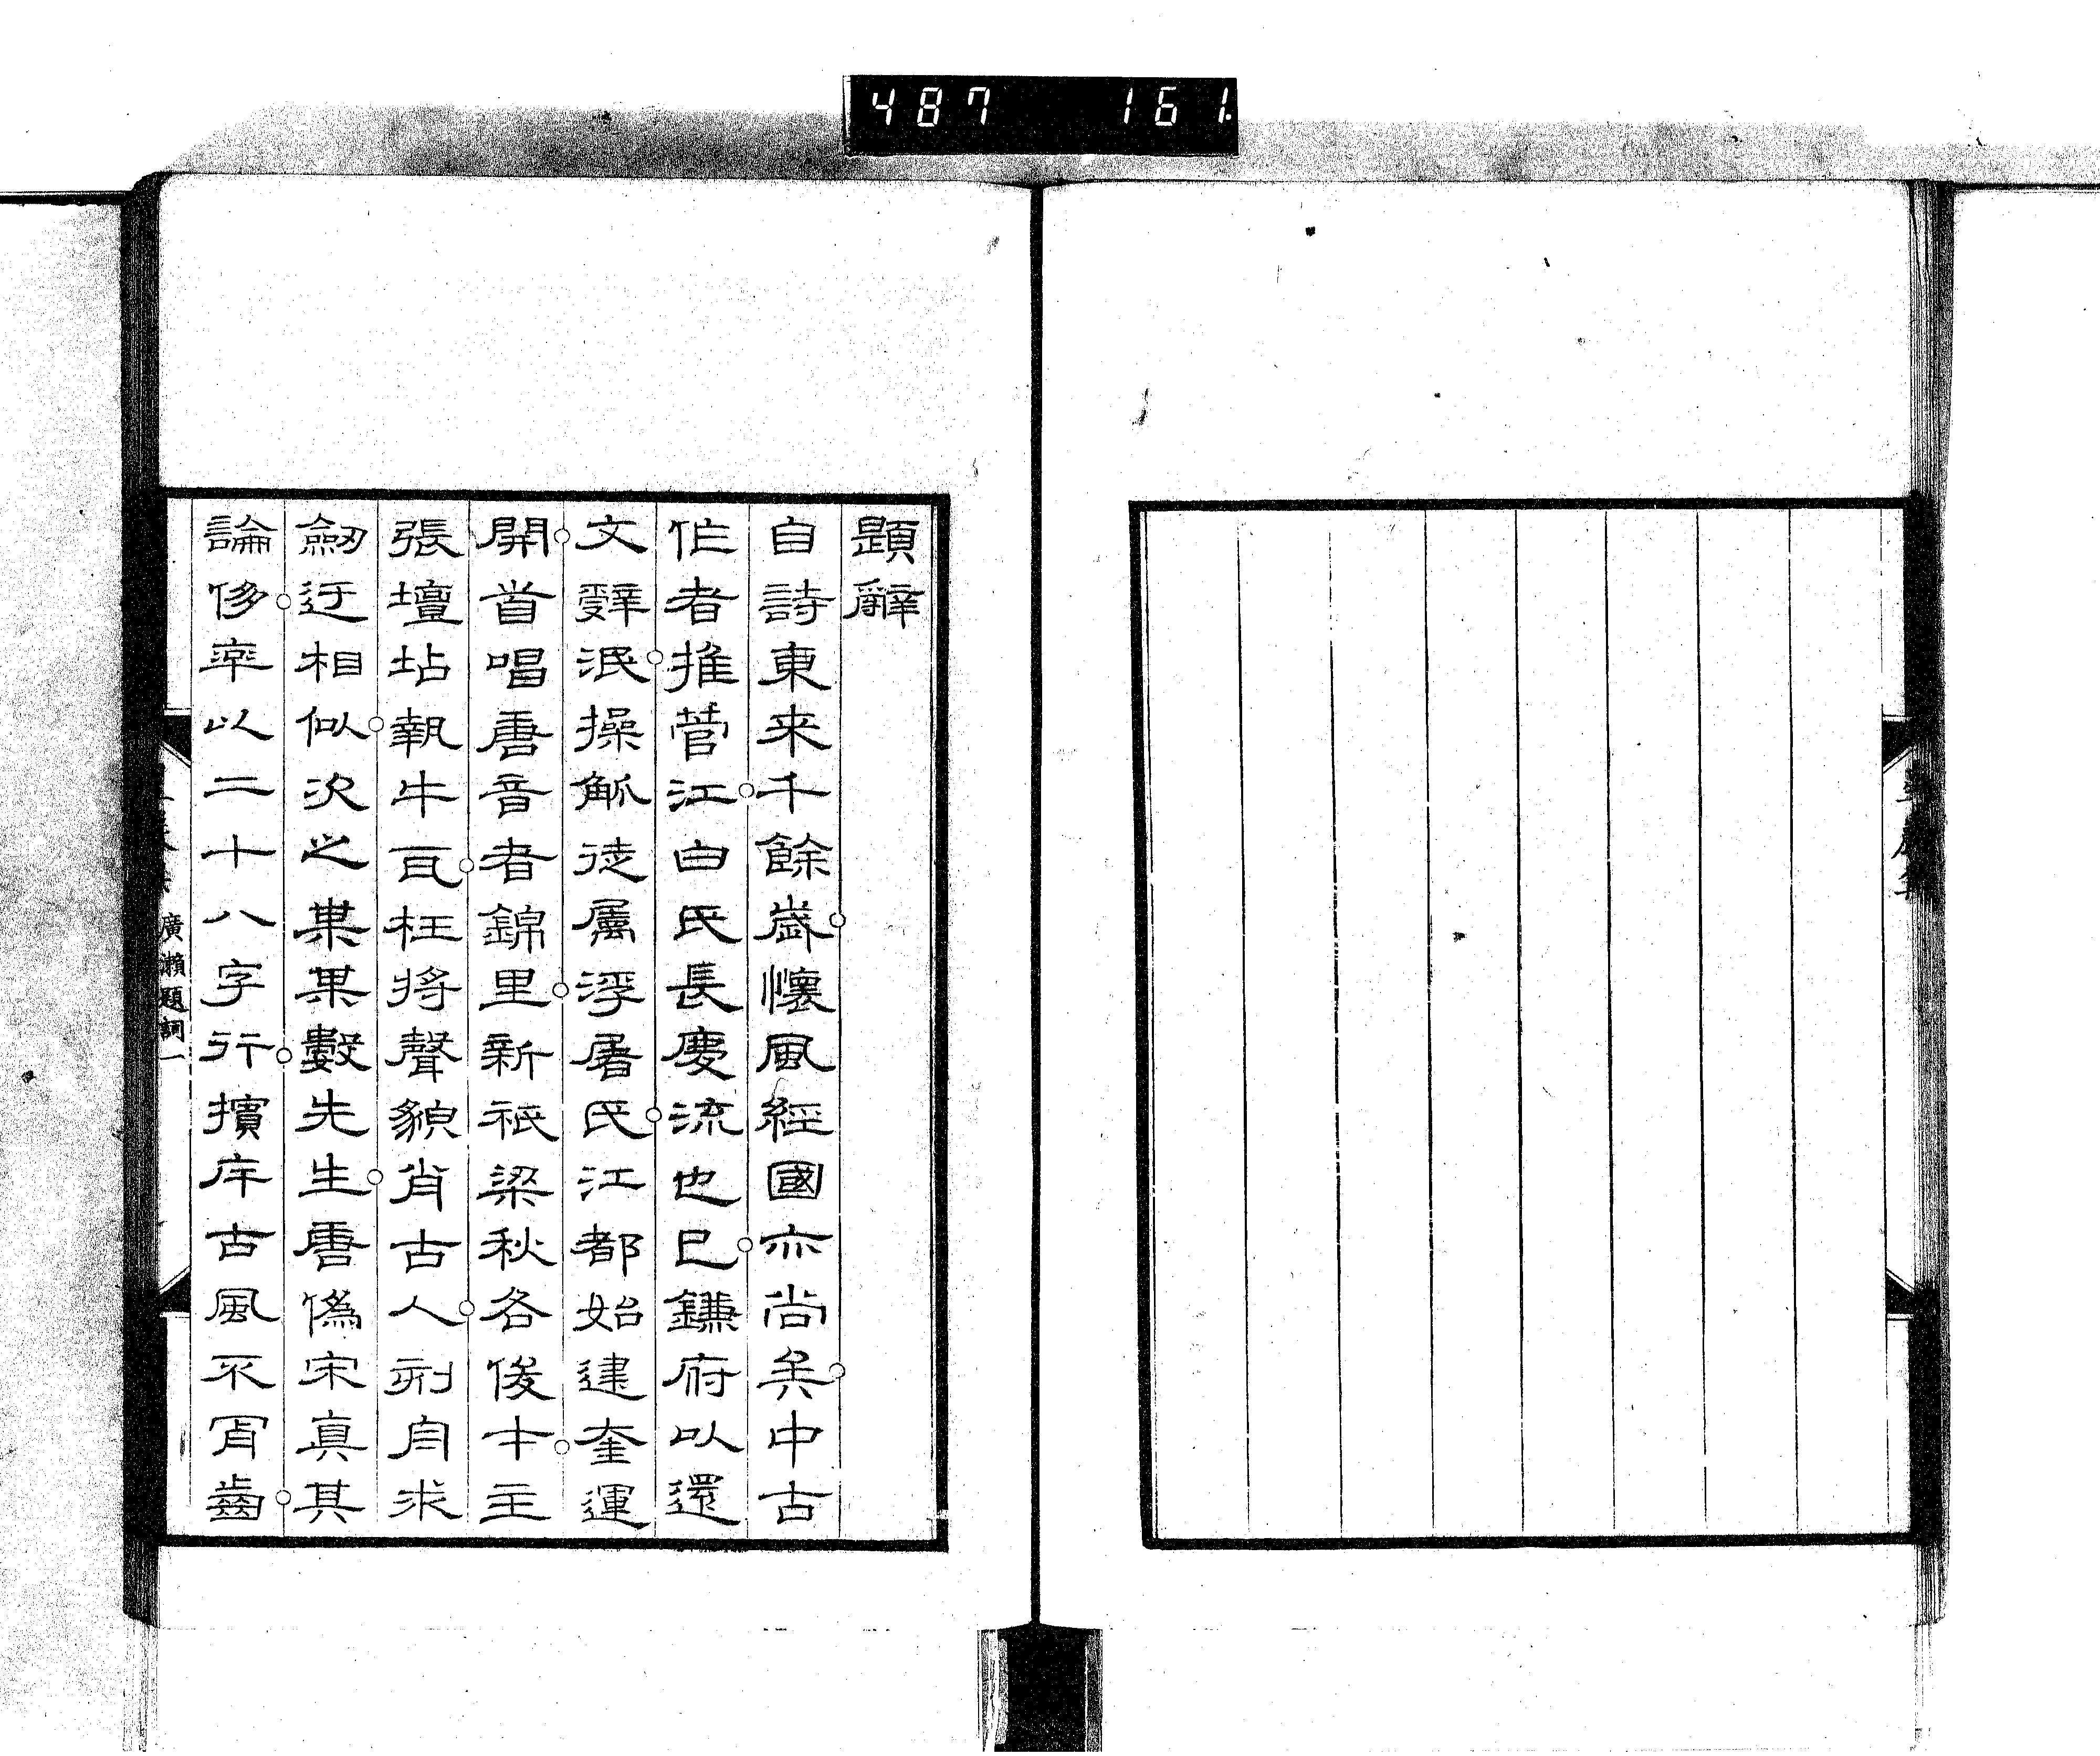 487 161
題辭
自詩東来千餘歲。懷風經國亦尚矣。中古
作者推菅江。白氏長慶流也已。鎌府以還
文辭泯。操觚徒屬浮屠氏。江都始建奎運
開。首唱唐音者錦里。新祇梁秋各俊才。主
張壇坫執牛耳。枉將聲貌肖古人。刻自求
劒迂相似。次之菓菓數先生。唐偽宋真其
論侈。率以二十八字行。擯斥古風不肎齒。
廣瀨題詞一